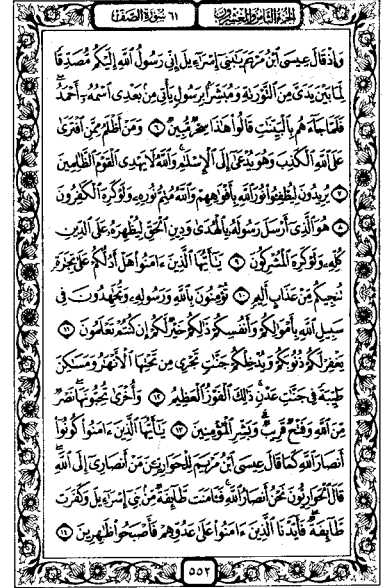 الجزء الثامن والعشرون ٦١ سورة الصف
وَإِذْ قَالَ عِيسَى ابْنُ مَرْيَمَ يَٰبَنِىٓ إِسْرَٰٓءِيلَ إِنِّى رَسُولُ ٱللَّهِ إِلَيْكُم مُّصَدِّقًا
لِّمَا بَيْنَ يَدَىَّ مِنَ ٱلتَّوْرَىٰةِ وَمُبَشِّرًۢا بِرَسُولٍ يَأْتِى مِنۢ بَعْدِى ٱسْمُهُۥٓ أَحْمَدُ
فَلَمَّا جَآءَهُم بِٱلْبَيِّنَٰتِ قَالُوا۟ هَٰذَا سِحْرٌ مُّبِينٌ ٦ وَمَنْ أَظْلَمُ مِمَّنِ ٱفْتَرَىٰ
عَلَى ٱللَّهِ ٱلْكَذِبَ وَهُوَ يُدْعَىٰٓ إِلَى ٱلْإِسْلَٰمِ وَٱللَّهُ لَا يَهْدِى ٱلْقَوْمَ ٱلظَّٰلِمِينَ
٧ يُرِيدُونَ لِيُطْفِـُٔوا۟ نُورَ ٱللَّهِ بِأَفْوَٰهِهِمْ وَٱللَّهُ مُتِمُّ نُورِهِۦ وَلَوْ كَرِهَ ٱلْكَٰفِرُونَ
٨ هُوَ ٱلَّذِىٓ أَرْسَلَ رَسُولَهُۥ بِٱلْهُدَىٰ وَدِينِ ٱلْحَقِّ لِيُظْهِرَهُۥ عَلَى ٱلدِّينِ
كُلِّهِۦ وَلَوْ كَرِهَ ٱلْمُشْرِكُونَ ٩ يَٰٓأَيُّهَا ٱلَّذِينَ ءَامَنُوا۟ هَلْ أَدُلُّكُمْ عَلَىٰ تِجَٰرَةٍ
تُنجِيكُم مِّنْ عَذَابٍ أَلِيمٍ ١٠ تُؤْمِنُونَ بِٱللَّهِ وَرَسُولِهِۦ وَتُجَٰهِدُونَ فِى
سَبِيلِ ٱللَّهِ بِأَمْوَٰلِكُمْ وَأَنفُسِكُمْ ذَٰلِكُمْ خَيْرٌ لَّكُمْ إِن كُنتُمْ تَعْلَمُونَ ١١
يَغْفِرْ لَكُمْ ذُنُوبَكُمْ وَيُدْخِلْكُمْ جَنَّٰتٍ تَجْرِى مِن تَحْتِهَا ٱلْأَنْهَٰرُ وَمَسَٰكِنَ
طَيِّبَةً فِى جَنَّٰتِ عَدْنٍ ذَٰلِكَ ٱلْفَوْزُ ٱلْعَظِيمُ ١٢ وَأُخْرَىٰ تُحِبُّونَهَا نَصْرٌ
مِّنَ ٱللَّهِ وَفَتْحٌ قَرِيبٌ وَبَشِّرِ ٱلْمُؤْمِنِينَ ١٣ يَٰٓأَيُّهَا ٱلَّذِينَ ءَامَنُوا۟ كُونُوٓا۟
أَنصَارَ ٱللَّهِ كَمَا قَالَ عِيسَى ٱبْنُ مَرْيَمَ لِلْحَوَارِيِّـۧنَ مَنْ أَنصَارِىٓ إِلَى ٱللَّهِ
قَالَ ٱلْحَوَارِيُّونَ نَحْنُ أَنصَارُ ٱللَّهِ فَـَٔامَنَت طَّآئِفَةٌ مِّنۢ بَنِىٓ إِسْرَٰٓءِيلَ وَكَفَرَت
طَّآئِفَةٌ فَأَيَّدْنَا ٱلَّذِينَ ءَامَنُوا۟ عَلَىٰ عَدُوِّهِمْ فَأَصْبَحُوا۟ ظَٰهِرِينَ ١٤
٥٥٢